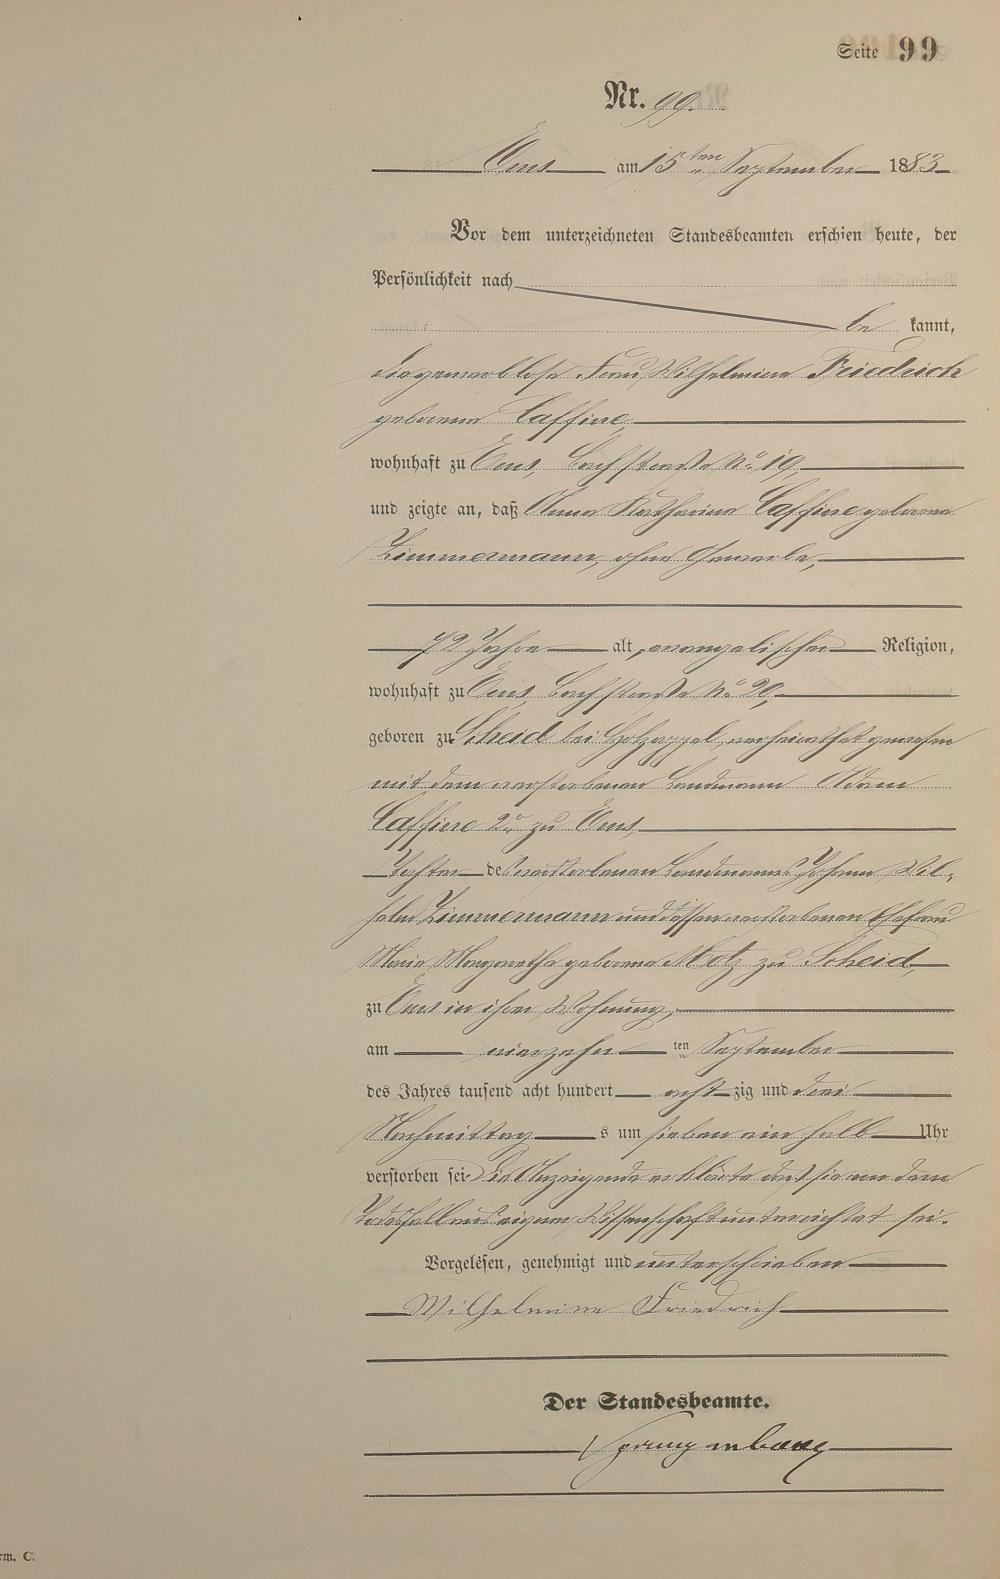 Seite 99
Nr. 99.
Ems am 15ten September 1883
Vor dem unterzeichneten Standesbeamten erschien heute, der
Persönlichkeit nach
be kannt,
die gewerblose Frau Wilhelmine Friedrich
geborene Caffine,
wohnhaft zu Ems, Bachstraße No. 19,
und zeigte an, daß Anna Katharina Caffine geborene
Zimmermann, ohne Gewerbe,
72 Jahre alt, evangelischer Religion,
wohnhaft zu Ems, Bachstraße No. 20,
geboren zu Scheid bei Holzappel, verheirathet gewesen
mit dem verstorbenen Landmann Adam
Caffine 2r zu Ems,
Tochter des verstorbenen Landmannes Johann Wil-
helm Zimmermann und dessen verstorbenen Ehefrau
Maria Margaretha geborene Motz zu Scheid,
zu Ems in ihrer Wohnung,
am vierzehn ten September
des Jahres tausend acht hundert acht zig und drei
Nachmittag s um sieben ein halb Uhr
verstorben sei. Die Anzeigende erklärte daß sie von dem
Todesfall aus eigener Wissenschaft unterrichtet sei.
Vorgelesen, genehmigt und unterschrieben
Wilhelmine Friedrich
Der Standesbeamte.
rm. C.